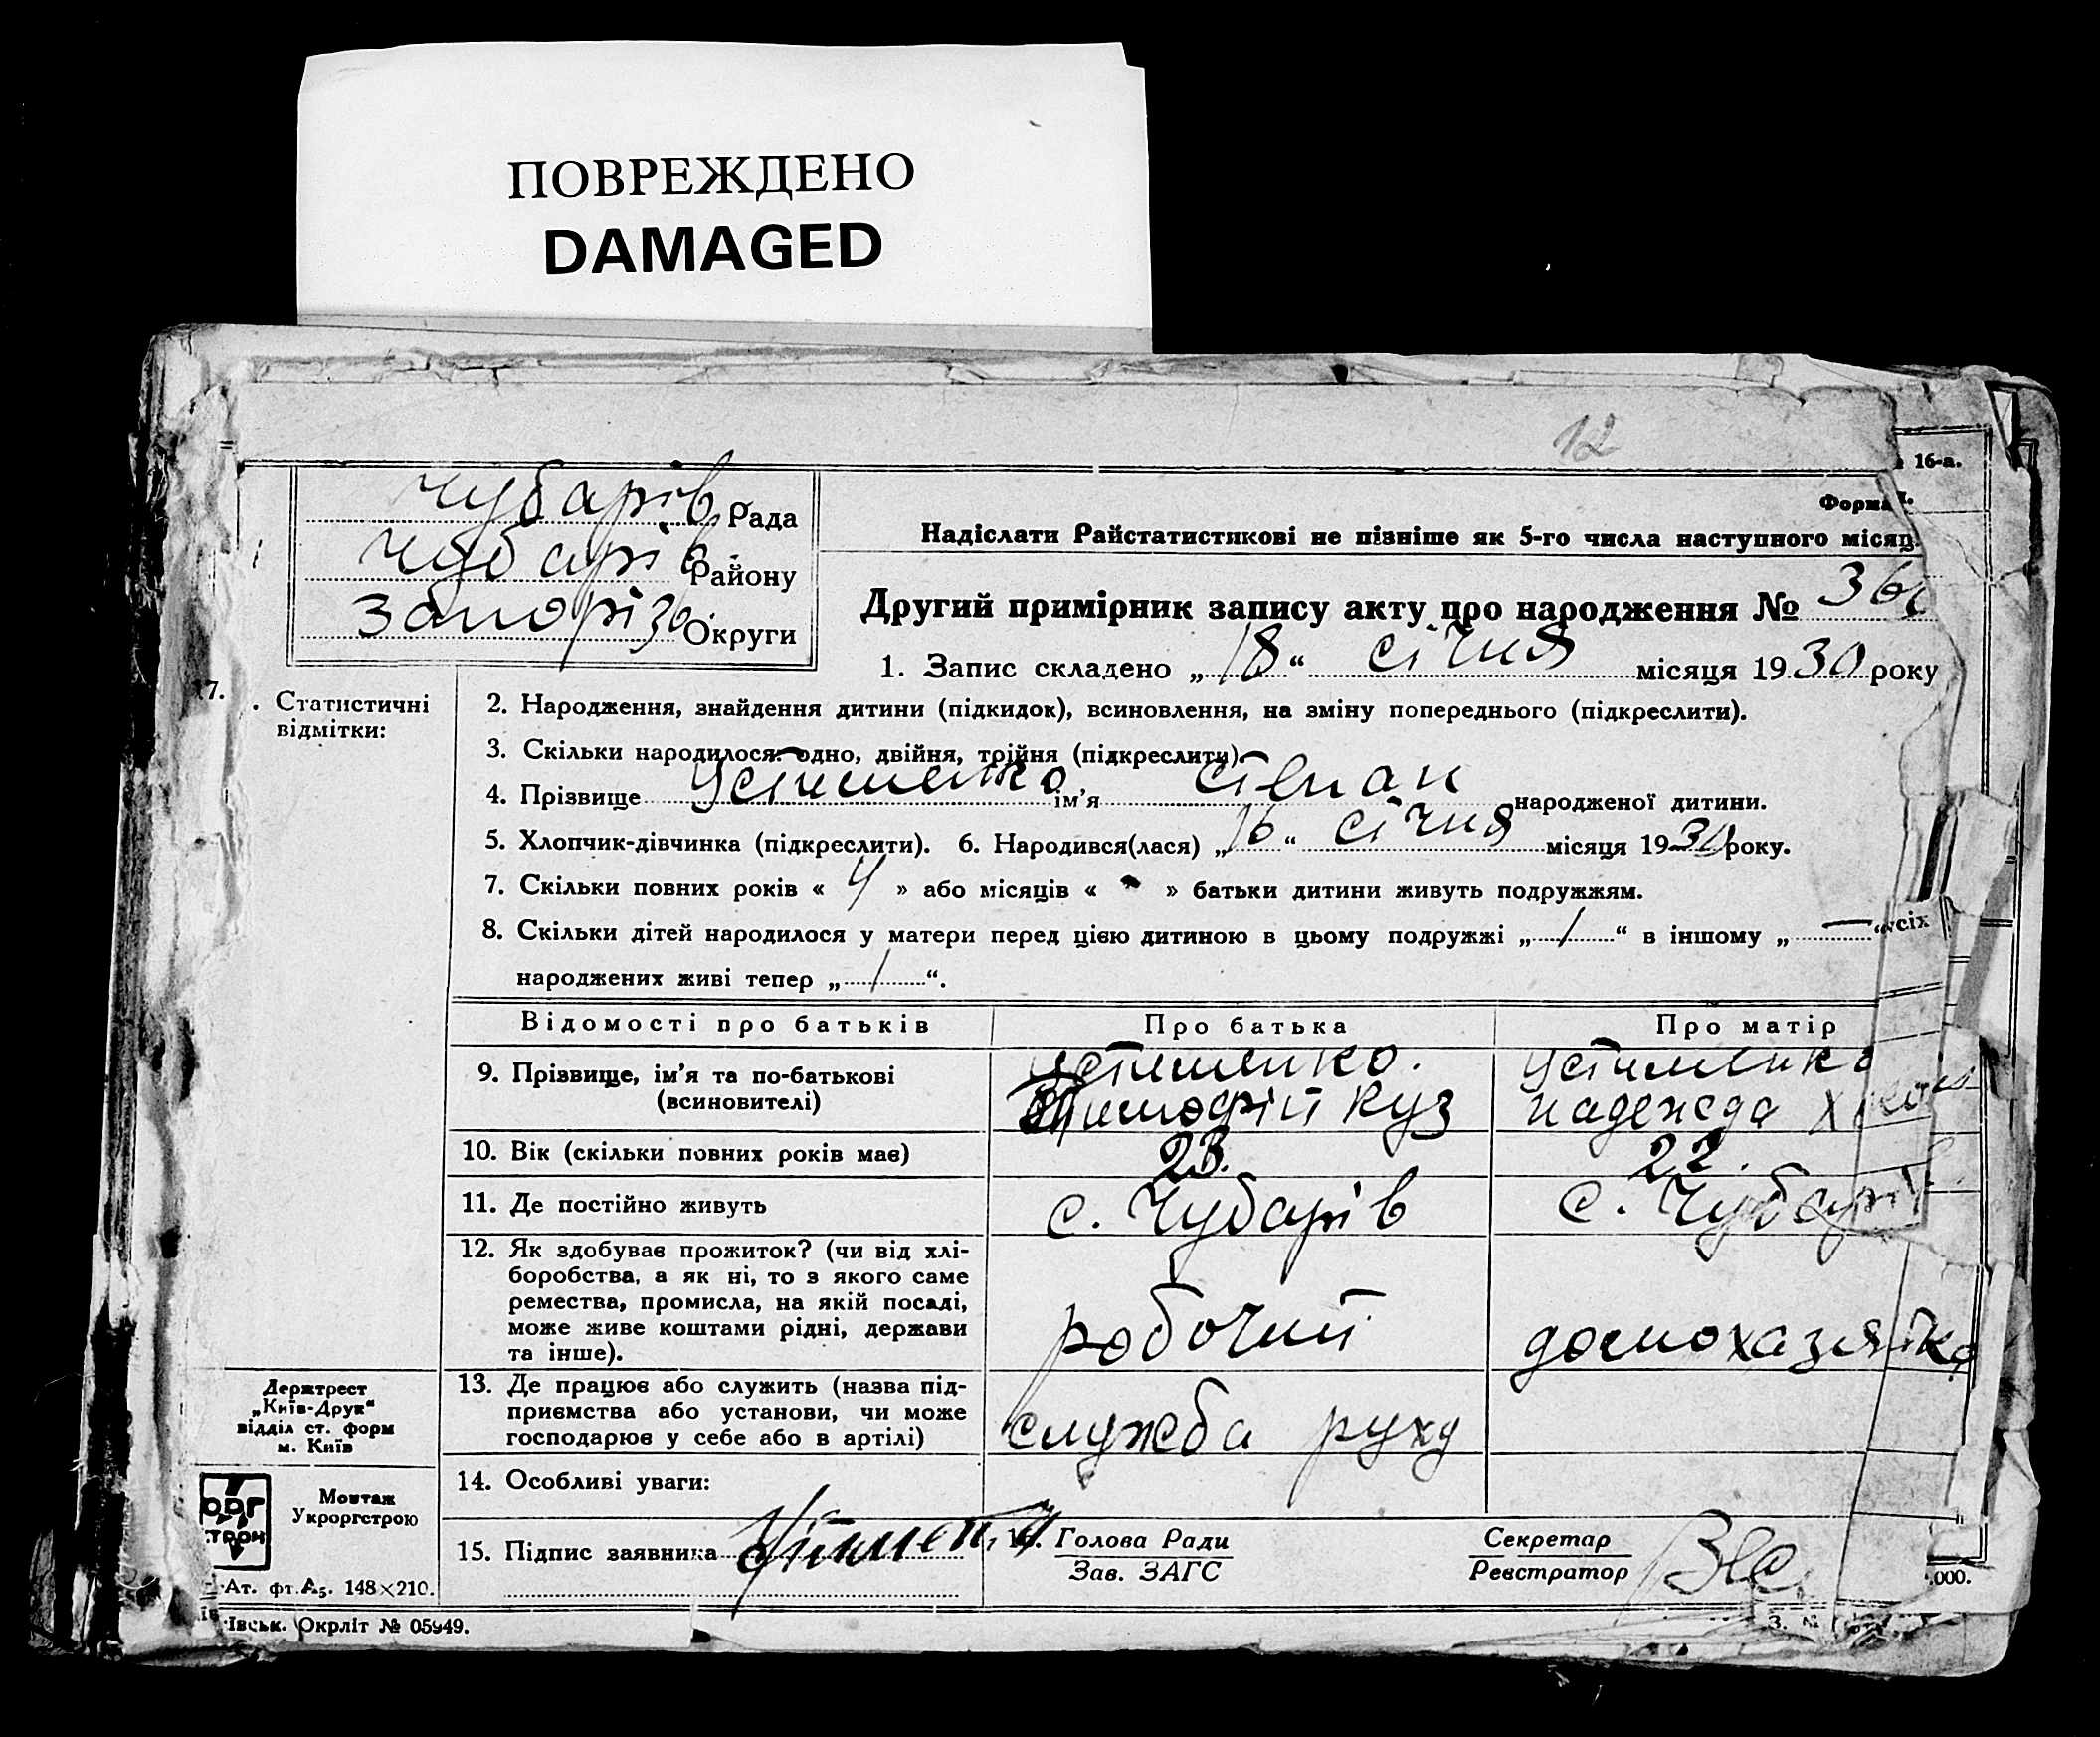 ПОВРЕЖДЕНО
DAMAGED
12
16-а.
Чубарів Рада
Чубарів Району
Запорізь. Округи
Форма
Надіслати Райстатистикові не пізніше як 5-го числа наступного місяц
Другий примірник запису акту про народження № 36
1. Запис складено „18“ січня місяця 1930 року
17.
Статистичні
відмітки:
2. Народження, знайдення дитини (підкидок), всиновлення, на зміну попереднього (підкреслити).
3. Скільки народилося: одно, двійня, трійня (підкреслити).
4. Прізвище Устименко ім’я Степан народженої дитини.
5. Хлопчик-дівчинка (підкреслити). 6. Народився(лася) „16“ січня місяця 1930 року.
7. Скільки повних років « 4 » або місяців « - » батьки дитини живуть подружжям.
8. Скільки дітей народилося у матери перед цією дитиною в цьому подружжі „1“ в іншому „—“ усіх
народжених живі тепер „1“.
Відомості про батьків Про батька Про матір
9. Прізвище, ім’я та по-батькові
(всиновителі)
Устименко.
Тимофій Куз
Устименко
надежда
10. Вік (скільки повних років має) 23. 22.
11. Де постійно живуть с. Чубарів с. Чубарі
12. Як здобуває прожиток? (чи від хлі-
боробства, а як ні, то з якого саме
ремества, промисла, на якій посаді,
може живе коштами рідні, держави
та інше).
робочий домохазяйка
13. Де працює або служить (назва під-
приємства або установи, чи може
господарює у себе або в артілі)
служба руху
14. Особливі уваги:
15. Підпис заявника
16. Голова Ради
Зав. ЗАГС
Секретар
Реєстратор
Держтрест
„Київ-Друк“
відділ ст. форм
м. Київ
Монтаж
Укроргстрою
Ат. фт. А5. 148×210.
ївськ. Окрліт № 05949.
.000.
З. №